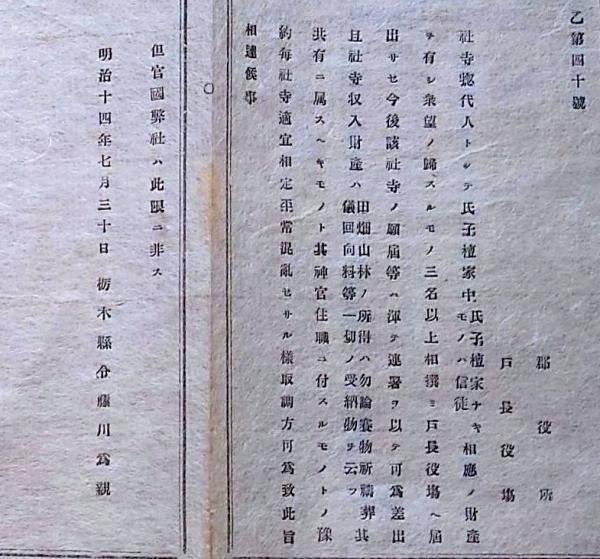 乙第四十號
郡役所
戸長役塲
社寺惣代人トシテ氏子檀家中氏子檀家ナキモノハ信徒相應ノ財産
ヲ有シ衆望ノ歸スルモノ三名以上相撰ミ戸長役塲ヘ届
出サセ今後該社寺ノ願届等ハ渾テ連署ヲ以テ可爲差出
且社寺収入財産ハ田畑山林ノ所得ハ勿論賽物祈禱葬儀回向料等一切ノ受納物ヲ云フ其
共有ニ属スヘキモノト其神官住職ニ付スルモノトノ豫
約毎社寺適宜相定平常混亂セサル樣取調方可爲致此旨
相達候事
但官國弊社ハ此限ニ非ス
明治十四年七月三十日 栃木縣令藤川爲親